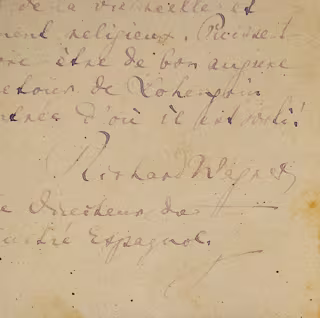 de la vie réelle et
ment religieux. Puisse-t
être de bon augure
retour de Lohengrin
d'où il est sorti!
Richard Wagner
Directeur du
Espagnol.